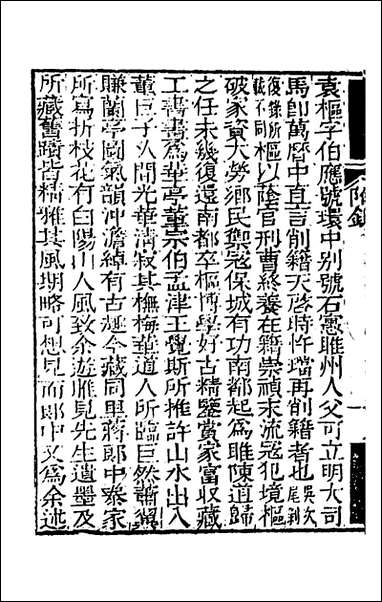 袁樞字伯應號環中别號石寓睢州人父可立明大司
馬卽萬曆中直言削籍天啓時忤璫再削籍者也
復錄所載不同
樞以蔭官刑曹終養在籍崇禎末流寇犯境樞
破家資大勞鄉民禦寇保城有功南都起爲睢陳道歸
之任未幾復還南都卒樞博學好古精鑒賞家富收藏
工書書爲華亭董宗伯孟津王覺斯所推許山水出入
董巨子久間光華淸寂其撫梅華道人所臨巨然蕭翼
賺蘭亭圖氣韻沖澹綽有古趣今藏同里蔣郎中泰家
所寫折枝花有白陽山人風致余遊睢見先生遺墨及
所藏舊蹟皆精雅其風期略可想見而郎中又爲余述